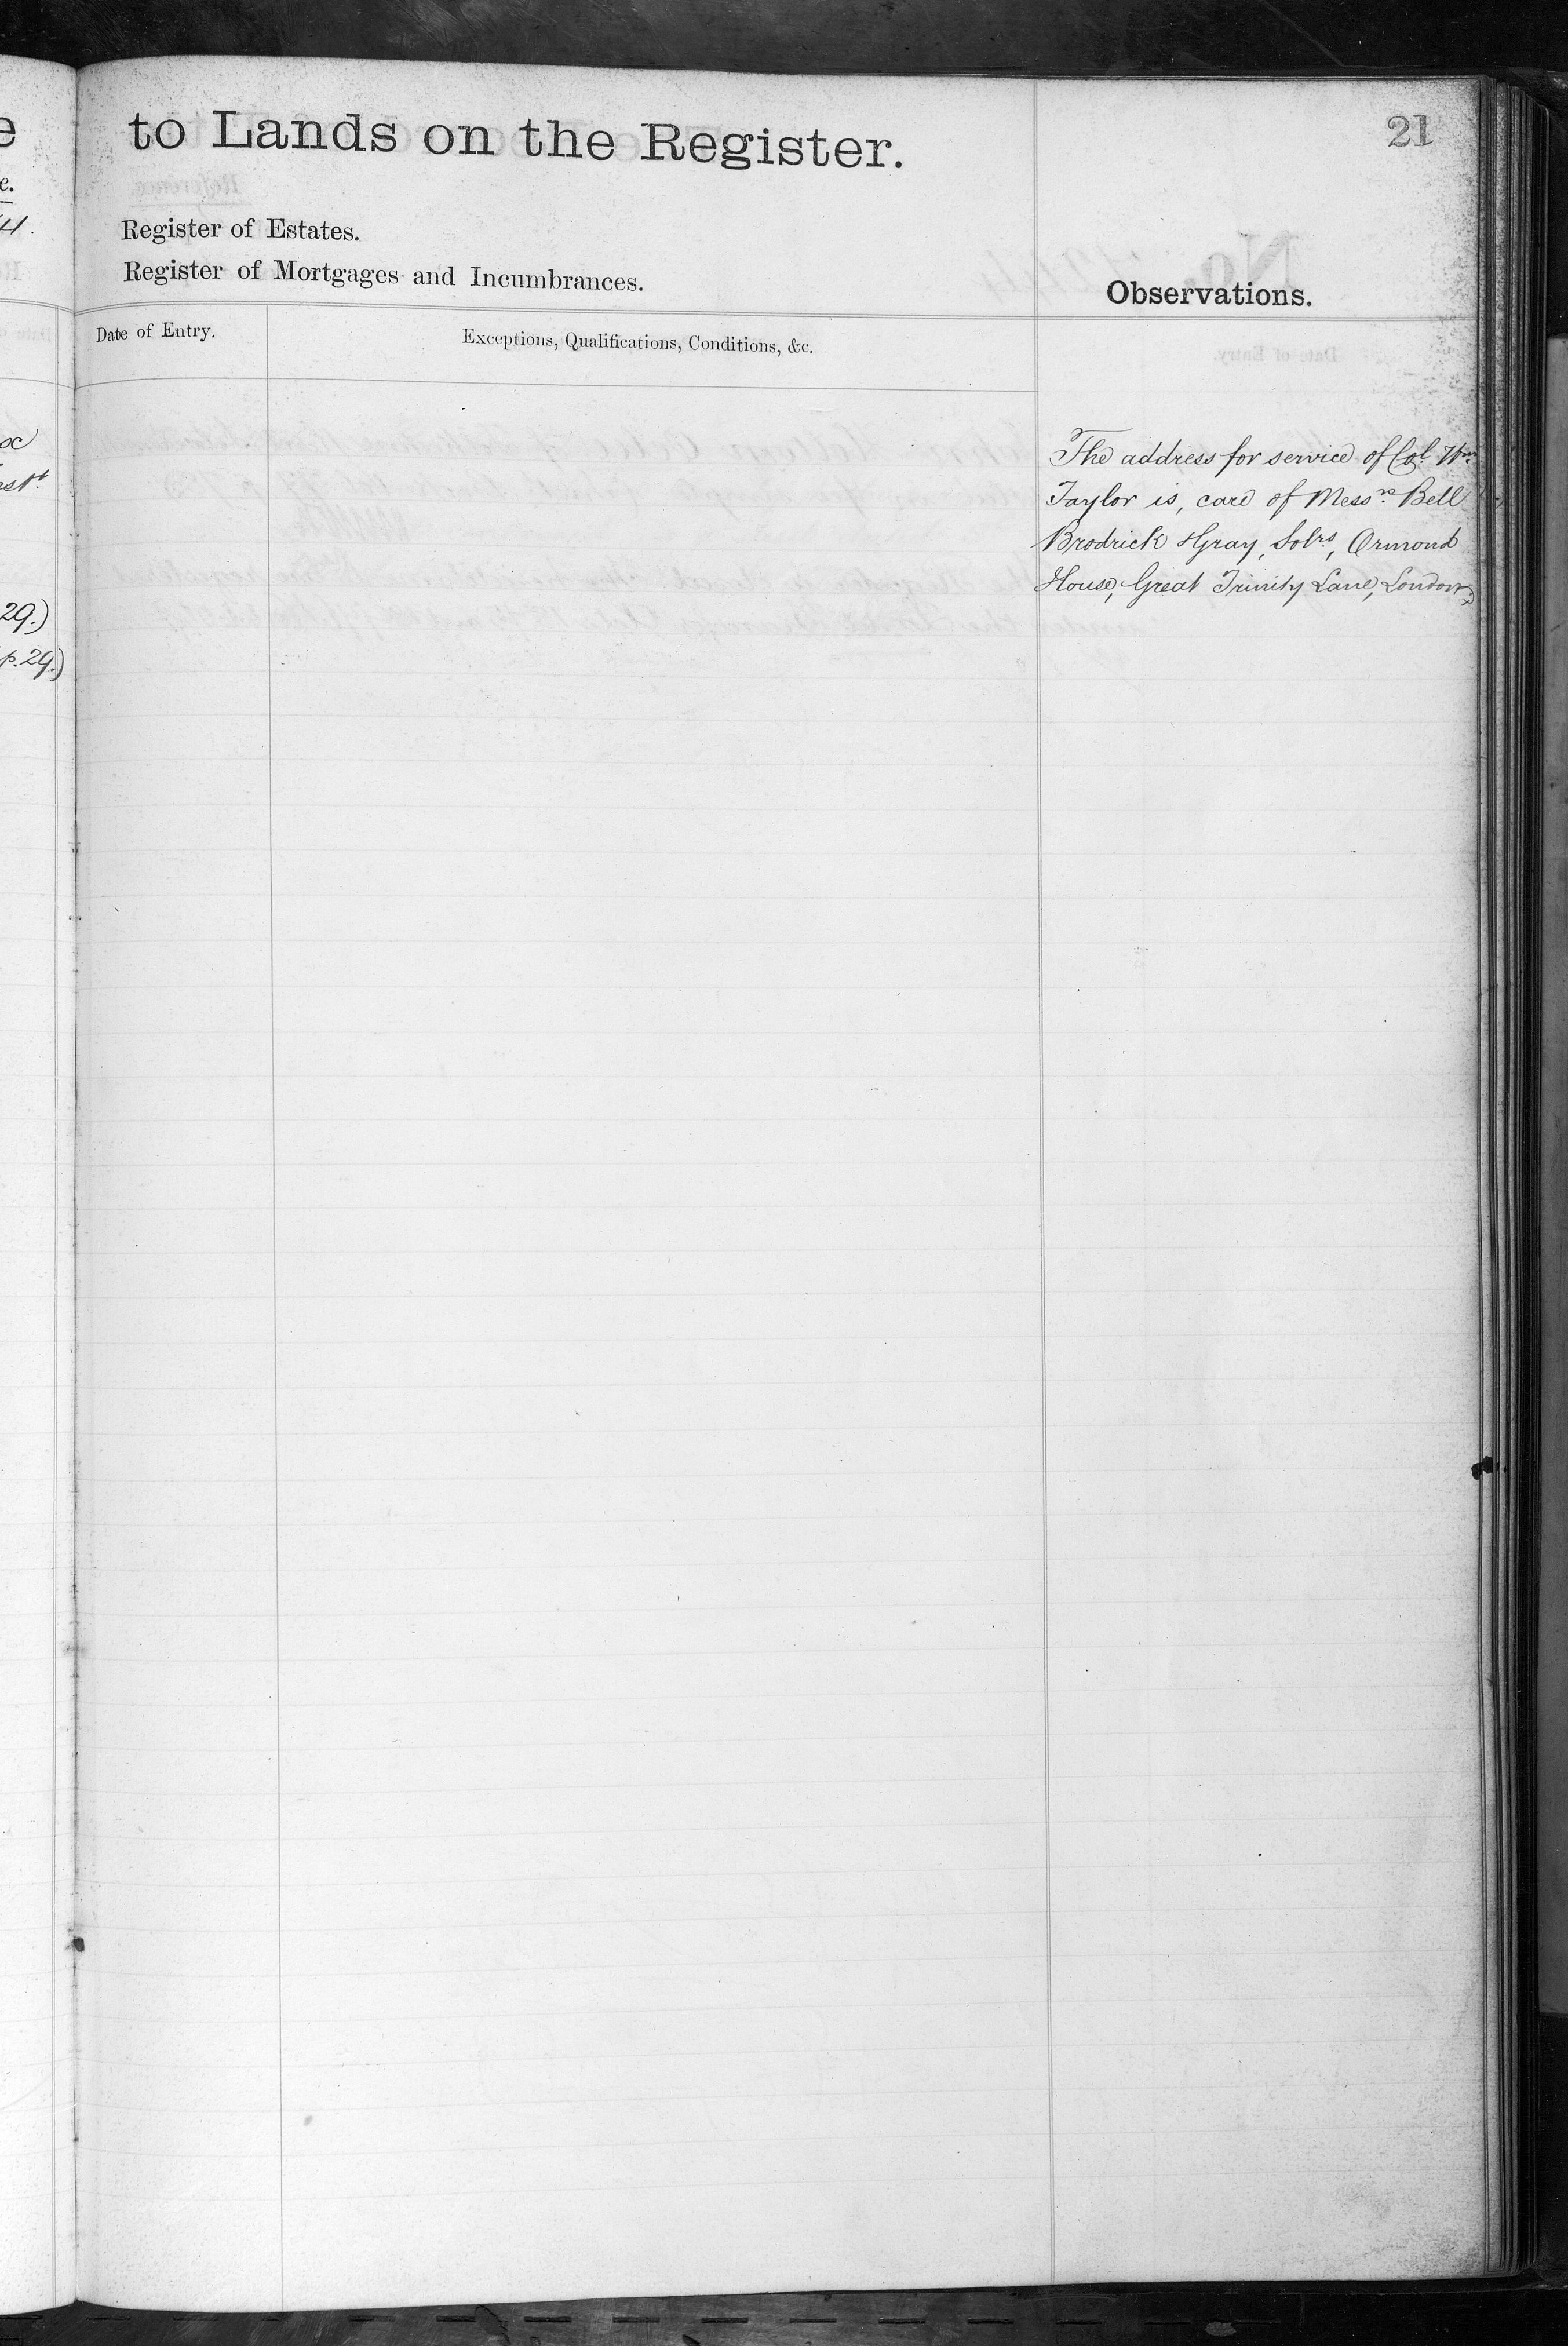 to Lands on the Register.
21
Register of Estates.
Register of Mortgages and Incumbrances.
Observations.
Date of Entry.
Exceptions, Qualifications, Conditions, &c.
The address for service of Col. Wm.
Taylor is, care of Messrs. Bell
Brodrick & Gray, Solrs, Ormond
House, Great Trinity Lane, London
29.)
p. 29.)